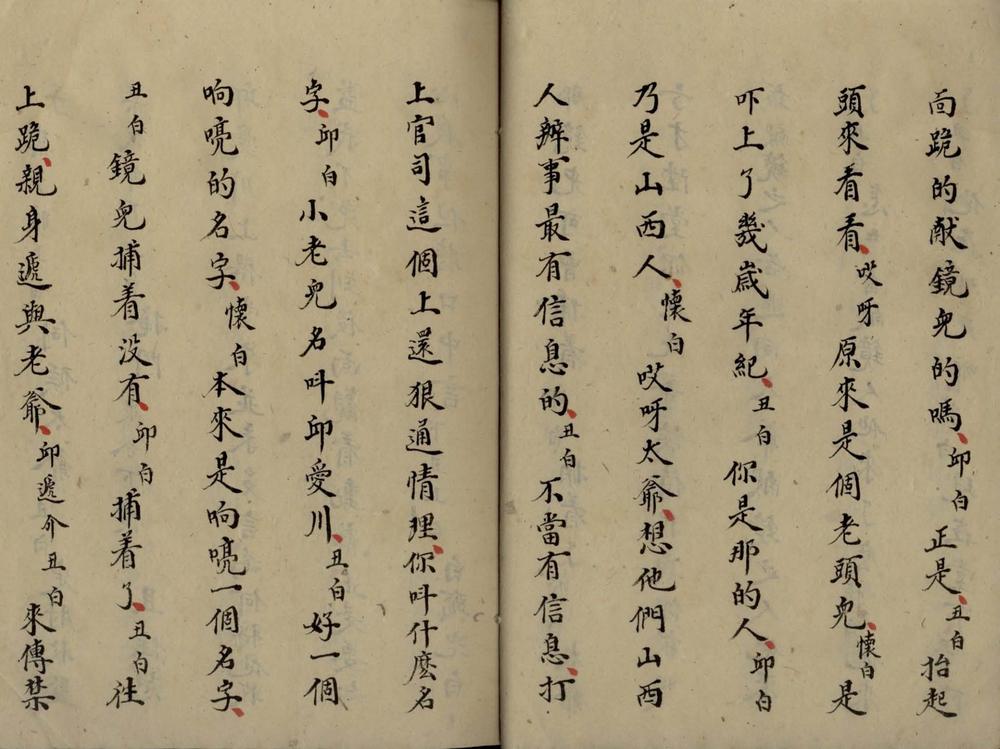 面跪的献鏡兒的嗎、邱白正是、丑白抬起
頭來看看、哎呀原來是個老頭兒、懷白是
吓上了幾歲年紀、丑白你是那的人、邱白
乃是山西人、懷白哎呀太爺、想他們山西
人辦事最有信息的、丑白不當有信息、打
上官司這個上還狠通情理、你呌什麽名
字、邱白小老兒名呌邱愛川、丑白好一個
响喨的名字、懷白本來是响喨一個名字、
丑白鏡兒捕着沒有、邱白捕着了、丑白往
上跪、親身遞與老爺、邱遞介丑白來傳禁